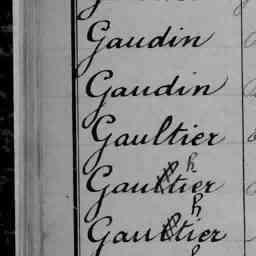 Gaudin
Gaudin
Gaultier
Gauthier
Gauthier